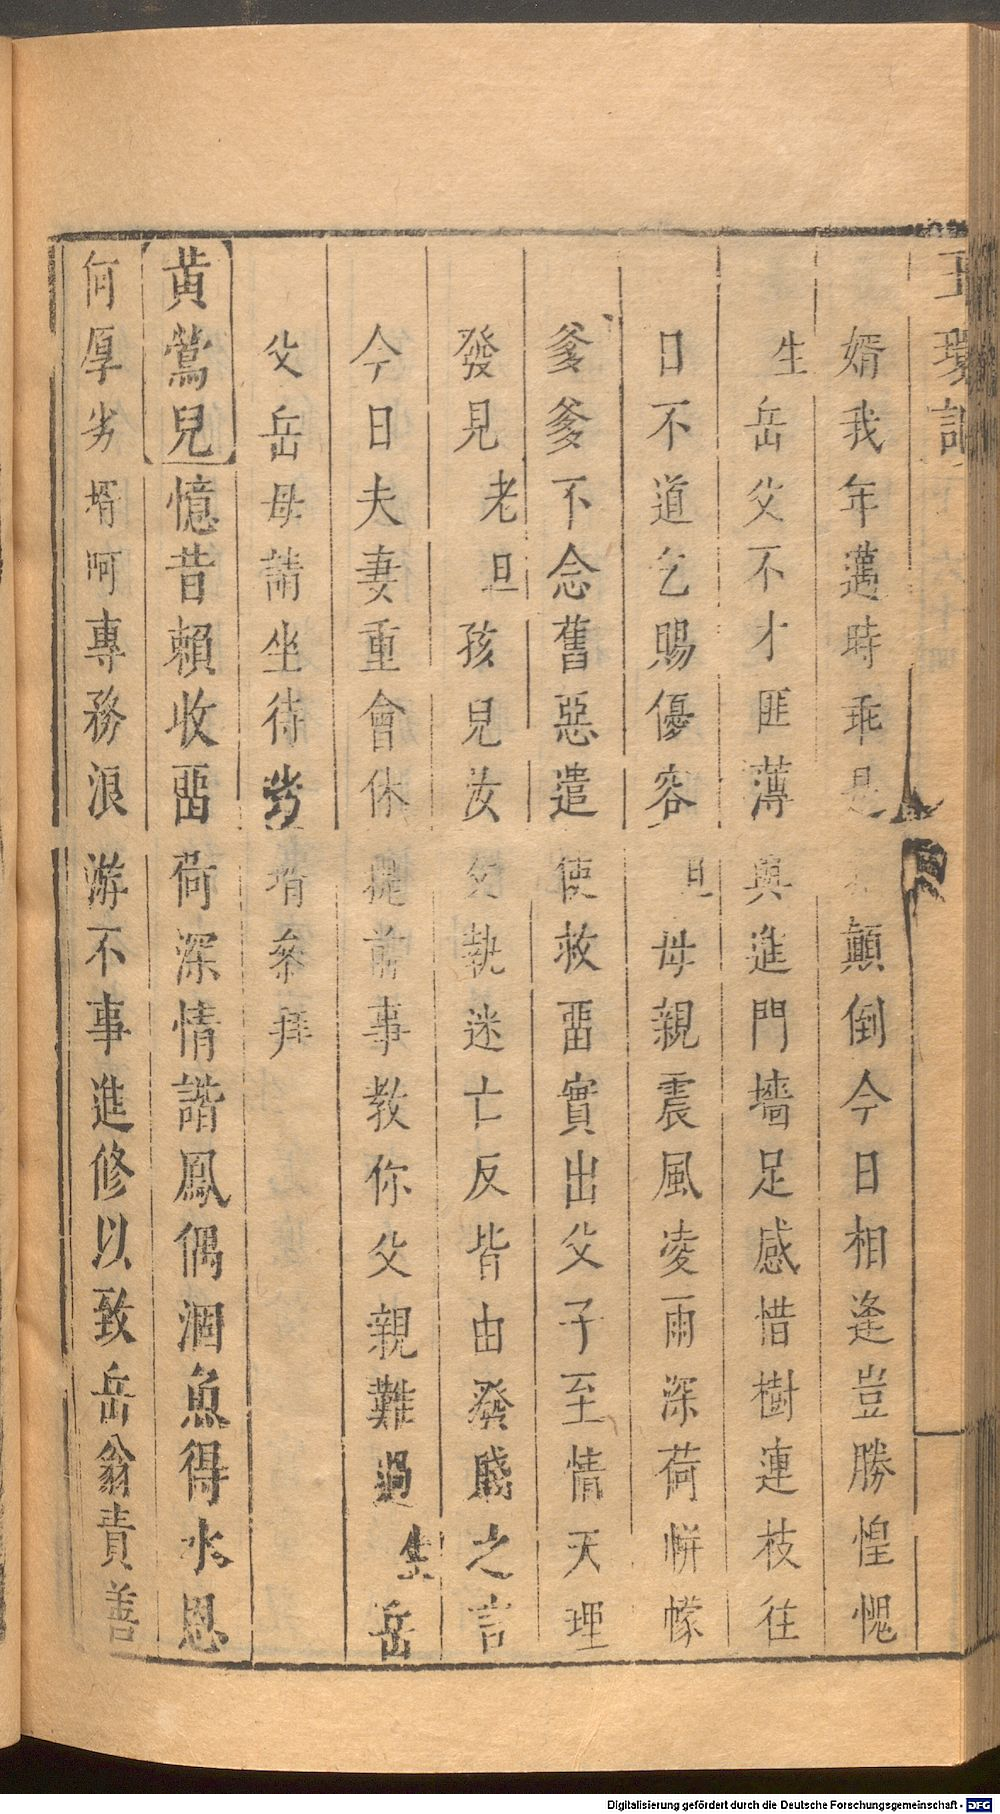 玉環記
婿我年邁時乖是顛倒今日相逢豈勝惶愧
生岳父不才匪薄與進門墻足感惜樹連枝往
日不道乞賜優容旦母親震風凌雨深荷帡幪
爹爹不念舊惡遣使救畱實出父子至情天理
發見老旦孩兒汝父執迷亡反皆由發蔵之言
今日夫妻重會休提前事教你父親難過生岳
父岳母請坐待劣壻叅拜
黄鶯兒憶昔賴收畱荷深情諧鳳偶涸魚得水恩
何厚劣壻呵專務浪游不事進修以致岳翁責善
Digitalisierung gefördert durch die Deutsche Forschungsgemeinschaft - DFG